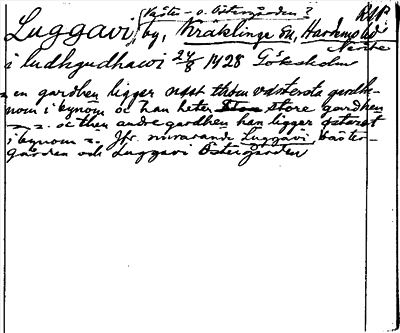 [Väster- o. Östergården?]
Luggavi, by, Kräklinge sn, Hardemo hd
Närke
i ludhgudhawi 24/8 1428 Göksholm
en gardhen ligger nest thom västersta gardh-
nom i bynom oc han heter store gardhen
oc then andre gardhen han ligger østerst
i bynom. Jfr nuvarande Luggavi Väster-
gården och Luggavi Östergården